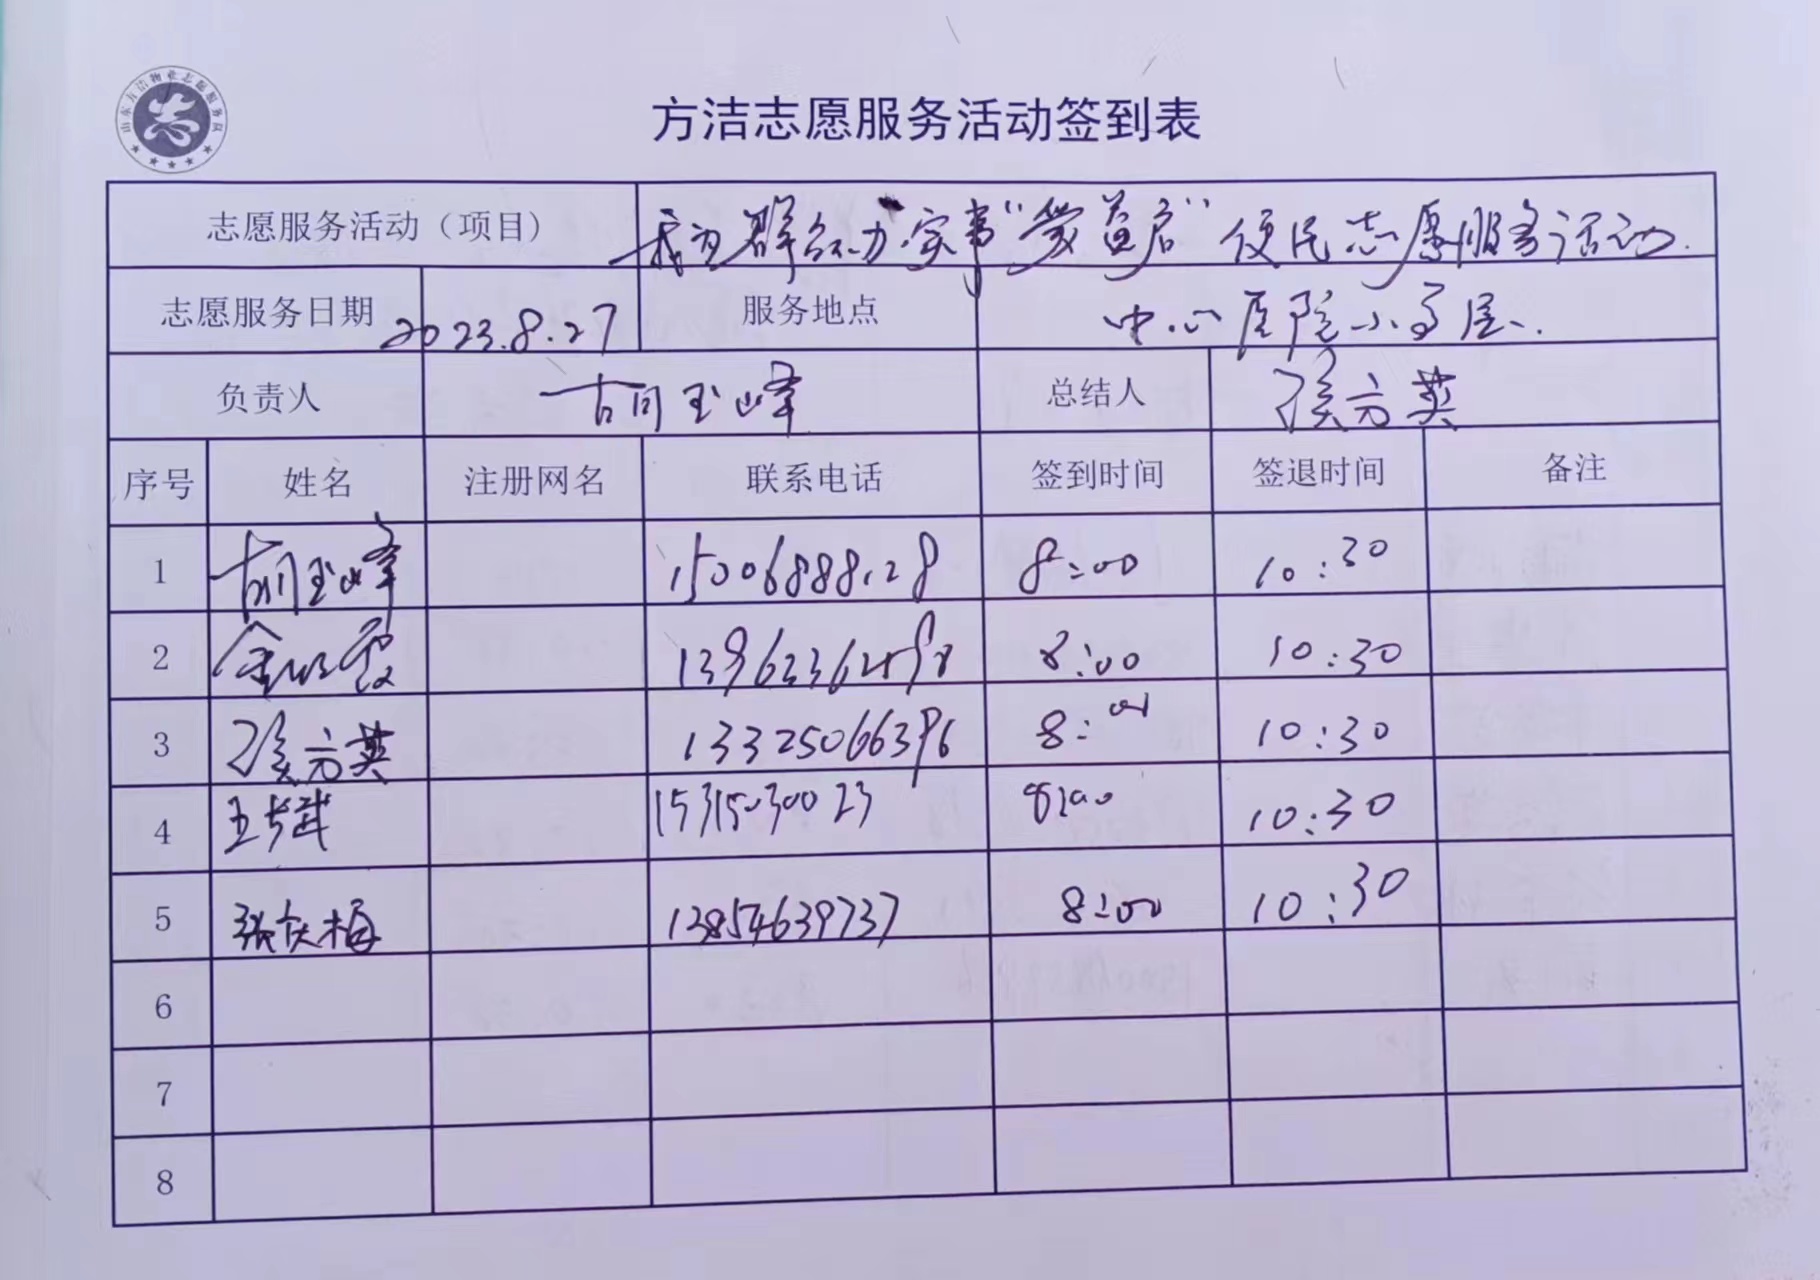 山东方洁物业志愿服务队
方洁志愿服务活动签到表
志愿服务活动（项目） 我为群众办实事"爱益启"便民志愿服务活动.
志愿服务日期 2023.8.27 服务地点 中心医院小高层.
负责人 胡玉峰 总结人 侯方英
序号 姓名 注册网名 联系电话 签到时间 签退时间 备注
1 胡玉峰 15006888128 8:00 10:30
2 8:00 10:30
3 侯方英 13325066396 8:01 10:30
4 15315030023 8:00 10:30
5 张庆梅 13854639737 8:00 10:30
6
7
8